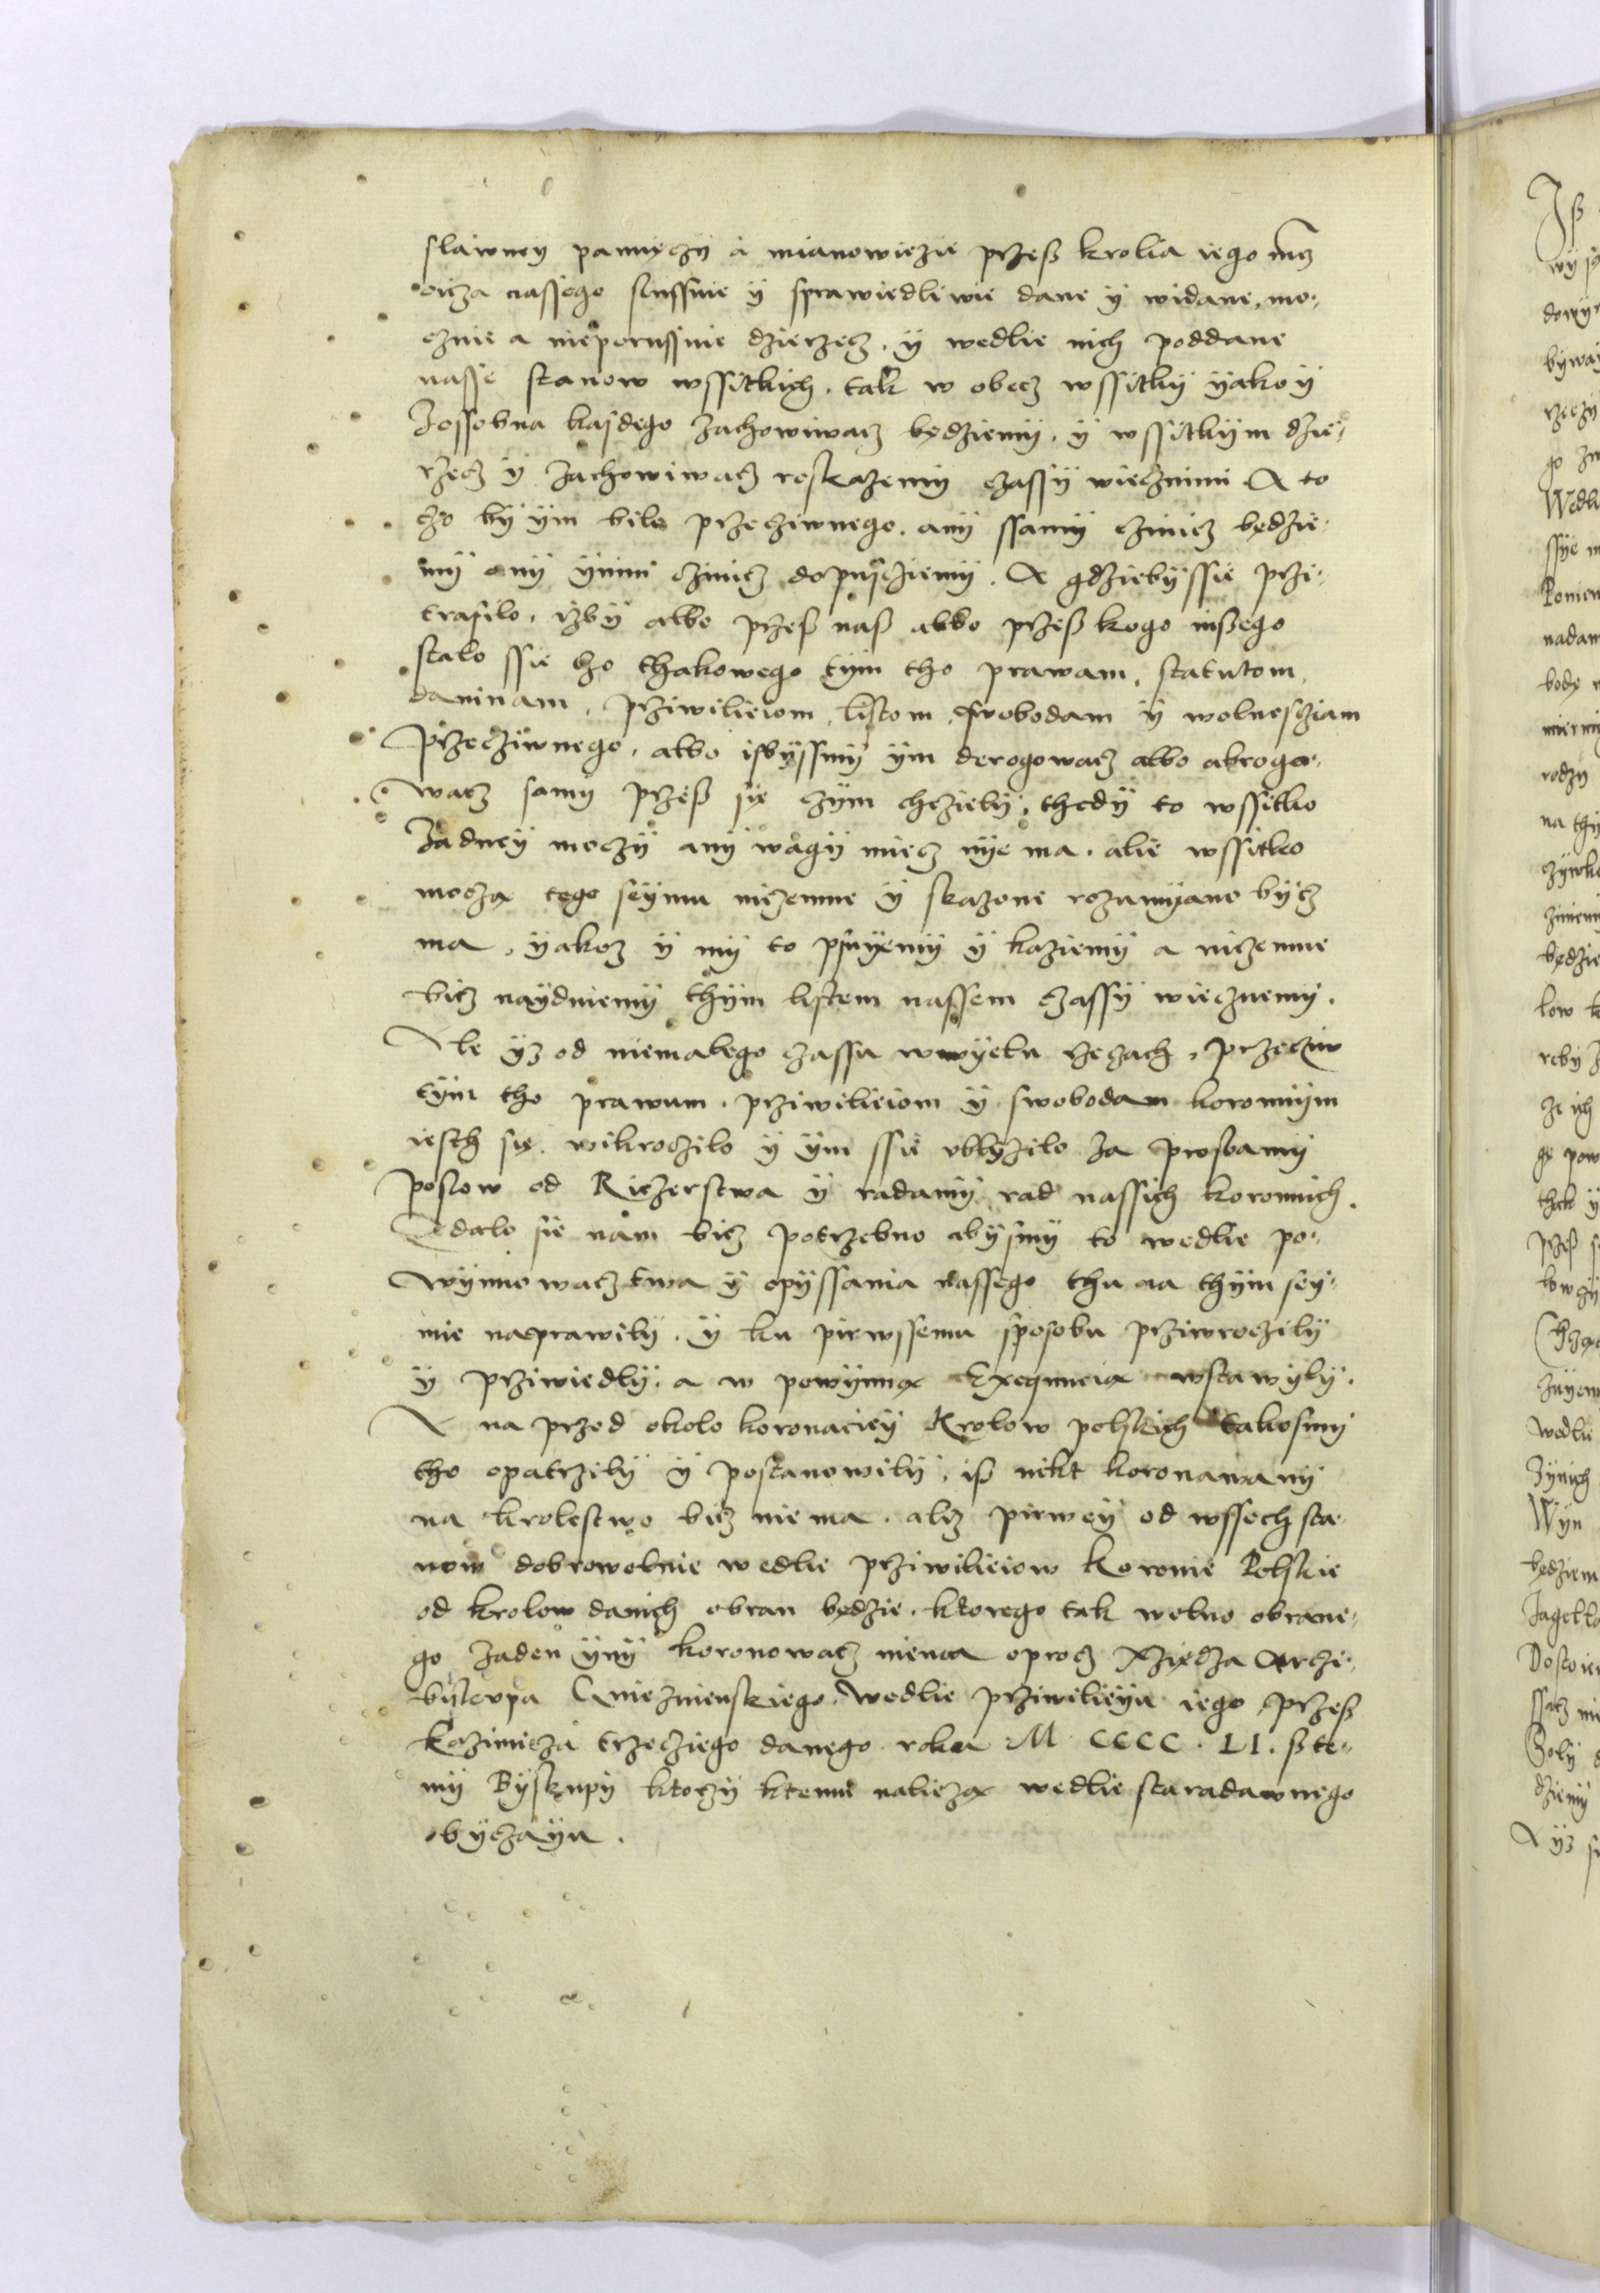 slawney pamięczy a mianowiczie przeß krolia iego mcz
oicza nassego slussnie ÿ sprawiedliwie dane ÿ widane, mo-
cznie a nieporussnie dzierzecz. ÿ wedlie nich poddane
nasse stanow wssitkich. tak w obecz wssitky ÿako ÿ
Zossobna kasdego zachowiwacz będziemÿ, ÿ wssitkÿm dzie-
rzecz ÿ zachowiwacz roskazemÿ czassÿ wiecznimi A to
czo bÿ ÿm bilo przecziwnego. anÿ ssamÿ czinicz będzie-
mÿ anÿ ÿnim czinicz dopusczemÿ. A gdziebÿssie przi-
trafilo, izbÿ albo przeß naß albo przeß kogo inßego
stalo ssie czo thakowego tÿm tho prawam, statutom,
daninam, prziwilieiom, listom, swobodam ÿ wolnoscziam
Przecziwnego, albo isbÿssmÿ ÿm derogowacz albo abroga-
wacz samÿ przeß się czÿm chcziely, thedÿ to wssitko
Zadneÿ moczÿ anÿ wagÿ miecz nÿe ma. alie wssitko
moczą tego seÿmu niczemne ÿ skazone rozumyano bÿcz
ma, ÿakoz ÿ mÿ to psuÿemÿ ÿ kaziemÿ a niczemne
bicz naÿdniemÿ thÿm listem nassem czassÿ wiecznemÿ.
Ale ÿz od niemalego czassu w wÿelu rzeczach, przeciw
tÿm tho prawam. prziwilieiom ÿ swobodam koronnÿm
iesth się wikroczilo ÿ ÿm ssie ubliżilo za prosbamÿ
poslow od Riczerstwa ÿ radamÿ rad nassich koronnich.
Zdalo sie nam bicz potrzebno abÿsmÿ to wedlie po-
wÿnnowacztwa ÿ opÿssania nassego thu na thÿm seÿ-
mie naprawilÿ. ÿ ku pirwssemu sposobu prziwroczilÿ
ÿ prziwiedlÿ, a w powÿnną Exequucią wstawÿlÿ.
A na przod okolo koronacieÿ Krolow polskich takosmÿ
tho opatrzilÿ ÿ postanowilÿ, iß nikt koronawanÿ
na krolestwo bicz nie ma. aliz pirweÿ od wssech sta-
now dobrowolnie wedlie prziwilieiow Koronie Polskie
od krolow danich obran będzie. ktorego tak wolno obrane-
go zaden ÿnÿ koronowacz niema oprocz Xziędza Arczi-
bÿskupa Gnieznienskiego. wedlie prziwilieÿu iego przeß
Kazimirza trzecziego danego roku M CCCC. LI. ß te-
mÿ Bÿskupÿ ktorzÿ ktemu nalieżą wedlie staradawnego
obÿczaÿu.